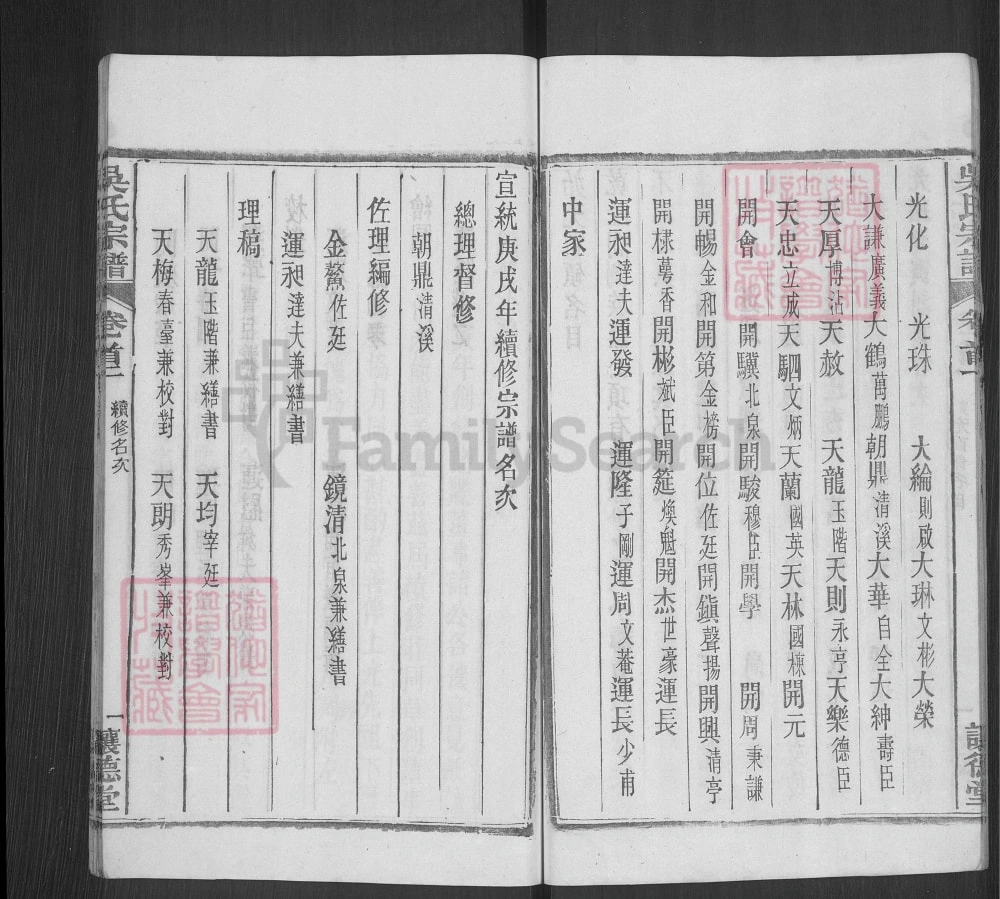 吳氏宗譜
卷首
讓德堂
光化 光珠 大綸則啟大琳文彬大榮
大謙廣義大鶴萬鵬朝鼎清溪大華自全大紳壽臣
天厚博沾天赦 天龍玉階天則永亭天樂德臣
天忠立成天駟文炳天蘭國英天林國棟開元
開會 開驥北泉開駿穆臣開學 開周秉謙
開暢金和開第金榜開位佐廷開鎮聲揚開興清亭
開棣萼香開彬斌臣開筵煥魁開杰世豪運長
運昶達夫運發 運隆子剛運周文菴運長少甫
中家
宣統庚戌年續修宗譜名次
總理督修
朝鼎清溪
佐理編修
金鰲佐廷 鏡清北泉兼繕書
運昶達夫兼繕書
理稿
天龍玉階兼繕書 天均宰廷
天梅春臺兼校對 天朗秀峯兼校對
吳氏宗譜
卷首
續修名次
一
讓德堂
FamilySearch